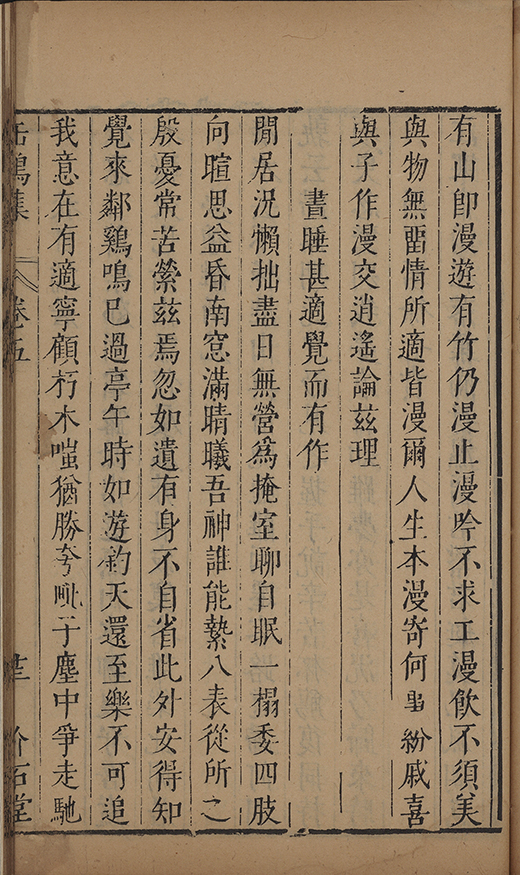 有山卽漫遊有竹仍漫止漫吟不求工漫飲不須美
與物無畱情所適皆漫爾人生本漫寄何事紛戚喜
與子作漫交逍遙論茲理
晝睡甚適覺而有作
閒居況懶拙盡日無營爲掩室聊自眠一榻委四肢
向暄思益昏南窓滿晴曦吾神誰能縶八表從所之
殷憂常苦縈茲焉忽如遺有身不自省此外安得知
覺來鄰鷄鳴巳過亭午時如遊鈞天還至樂不可追
我意在有適寧顧朽木嗤猶勝夸毗子塵中爭走馳
鴻集 卷五 介石堂